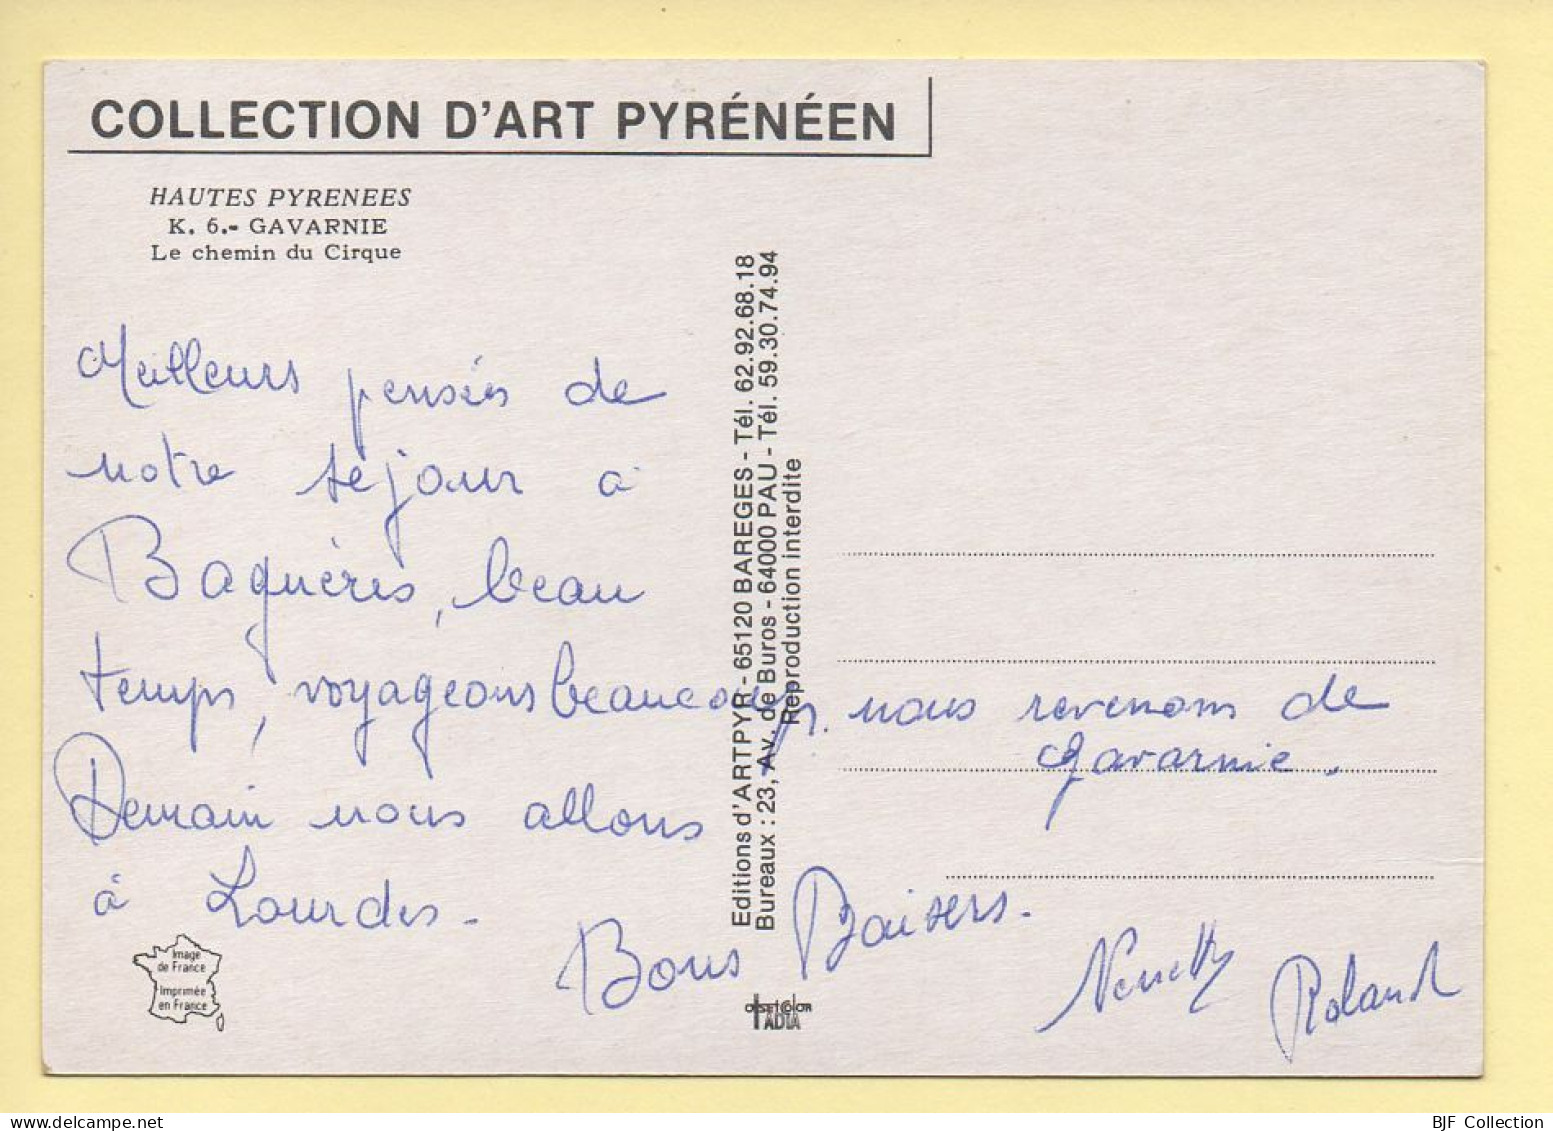 COLLECTION D'ART PYRÉNÉEN
HAUTES PYRENEES
K. 6.- GAVARNIE
Le chemin du Cirque
Meilleurs pensées de
notre séjour à
Bagnères, beau
temps, voyageons beaucoup. nous revenons de
Gavarnie.
Demain nous allons
à Lourdes.
Bons Baisers.
Roland
Editions d'ARTPYR - 65120 BAREGES - Tél. 62.92.68.18
Bureaux : 23, Av. de Buros - 64000 PAU - Tél. 59.30.74.94
Reproduction interdite
Image
de France
Imprimée
en France
BJF Collection